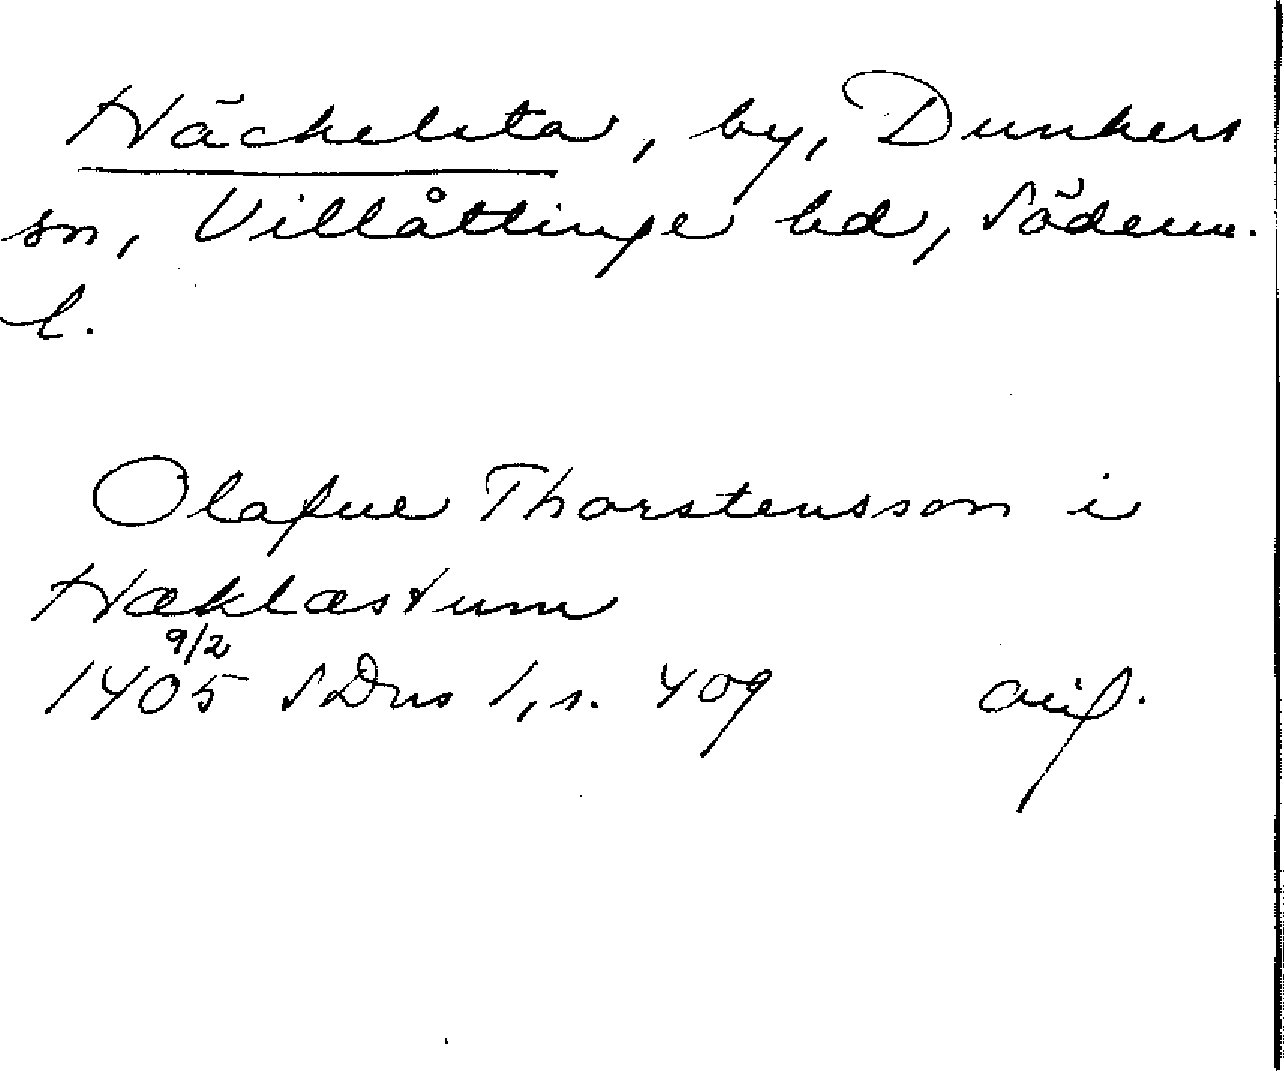 Häckelsta, by, Dunkers
sn, Villåttinge hd, Söderm.
l.
Olafue Thorstensson i
Hæklæstum
9/2
1405 SDns 1, s. 409 orig.